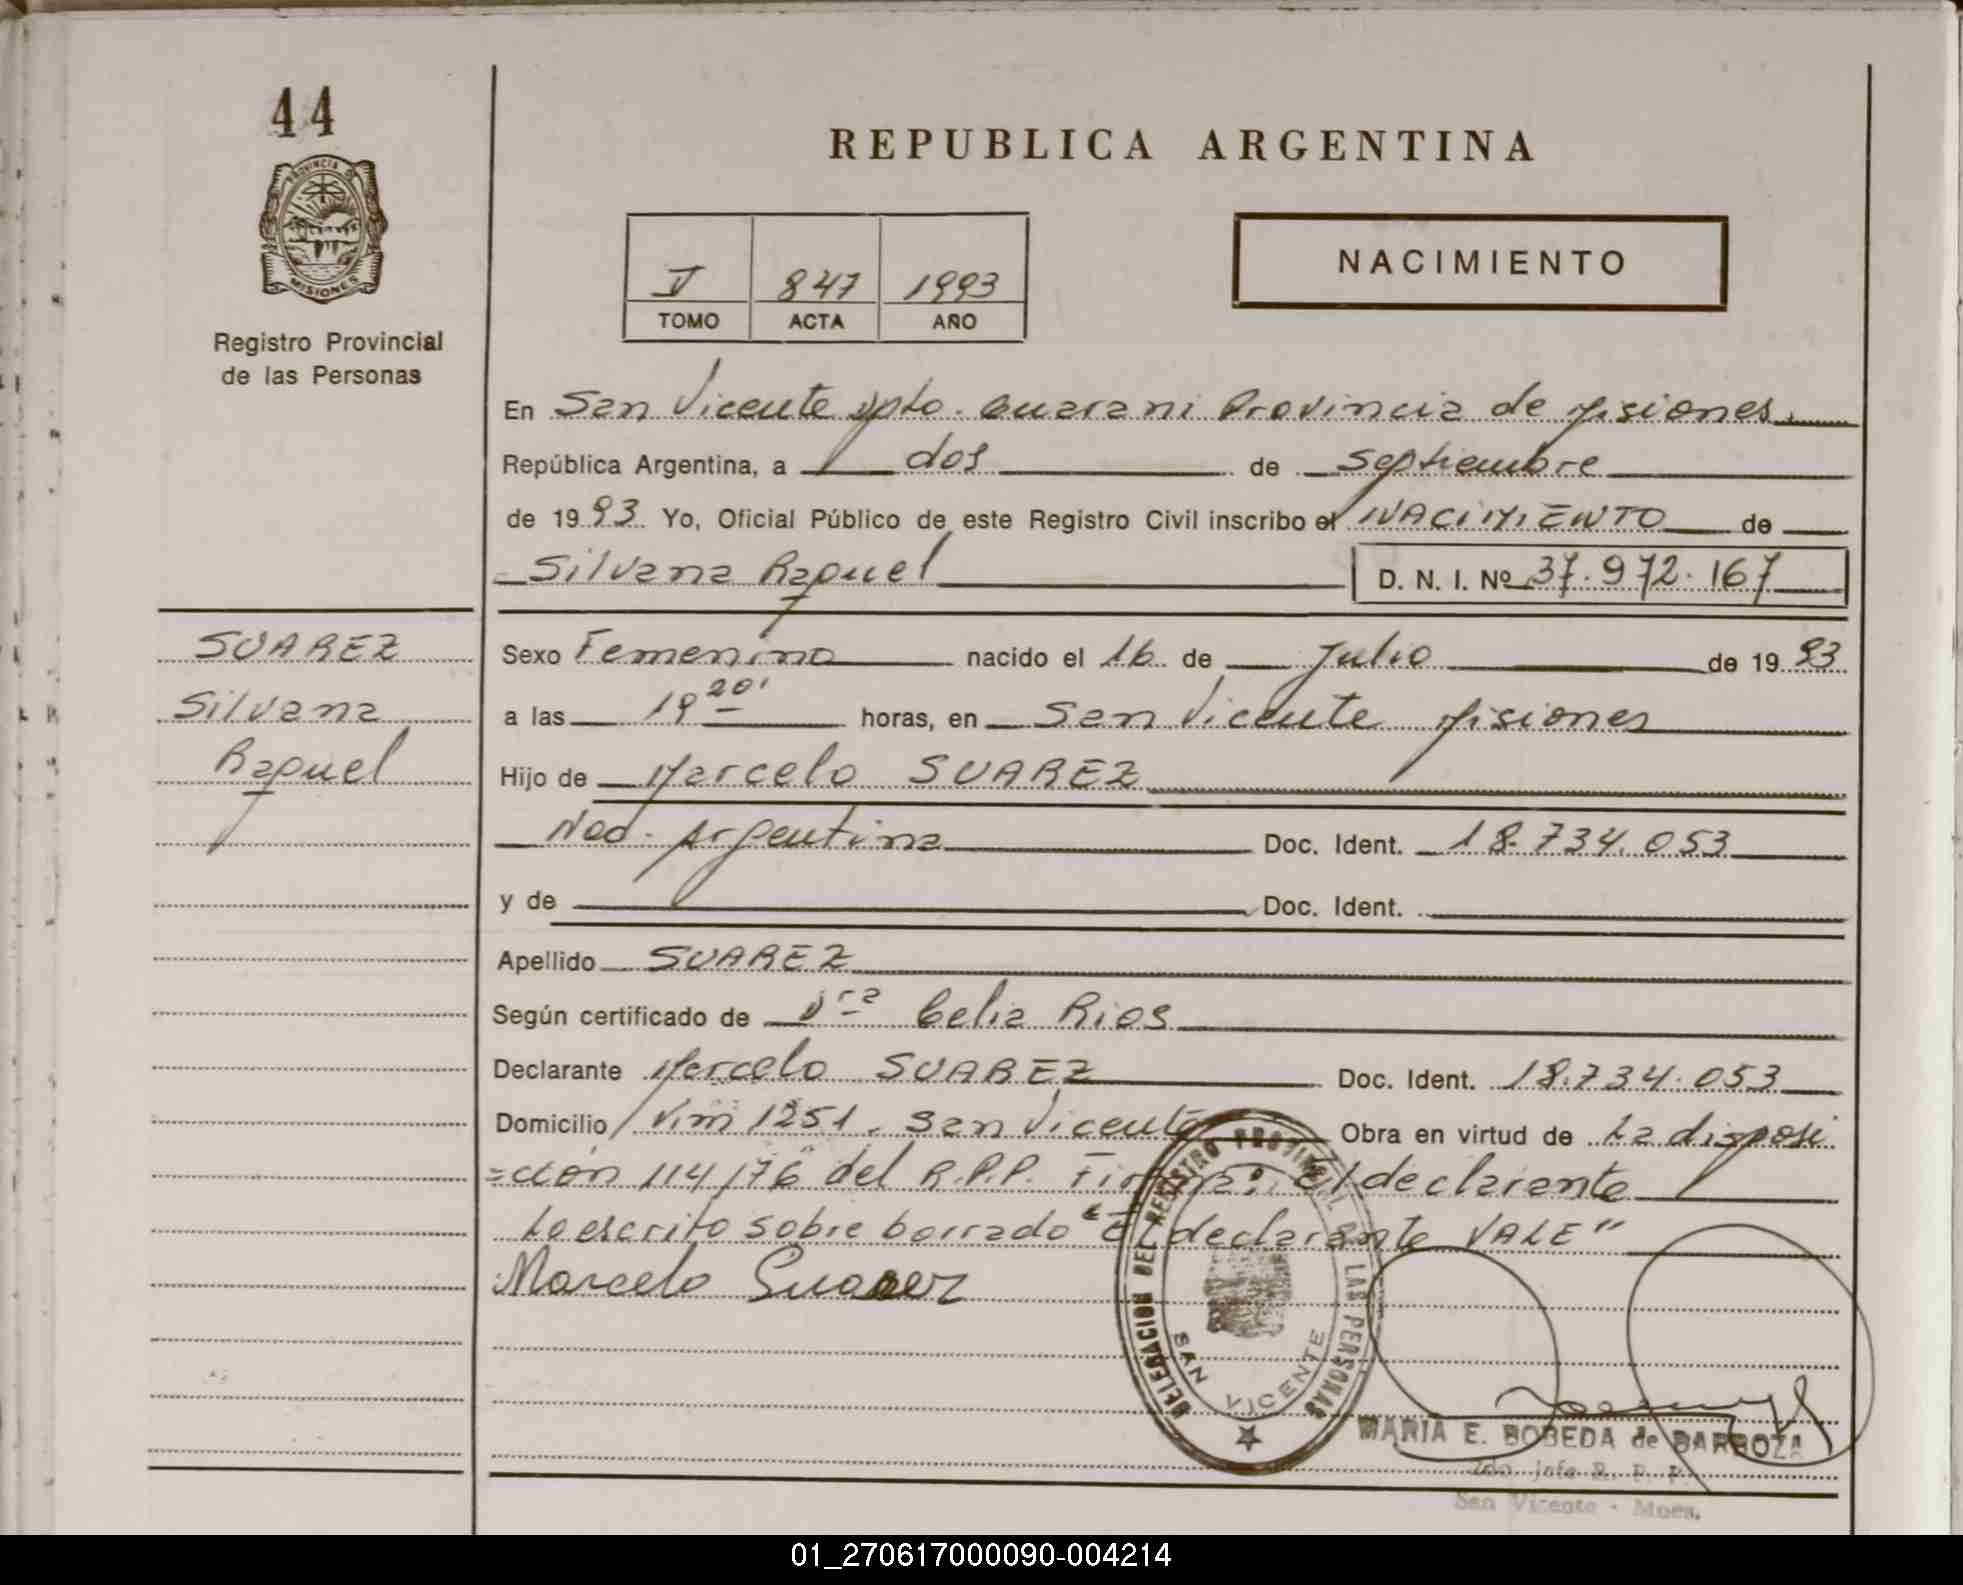 44
REPUBLICA ARGENTINA
PROVINCIA DE
MISIONES
Registro Provincial
de las Personas
V 847 1993
TOMO ACTA AÑO
NACIMIENTO
En San Vicente Dpto. Guarani Provincia de Misiones.
República Argentina, a dos de septiembre
de 1993 Yo, Oficial Público de este Registro Civil inscribo el NACIMIENTO de
Silvana Raquel D. N. I. Nº 37.972.167
SUAREZ
Silvana
Raquel
Sexo Femenino nacido el 16 de Julio de 1993
a las 19 20' horas, en San Vicente Misiones
Hijo de Marcelo SUAREZ
Nac. Argentina Doc. Ident. 18.734.053
y de Doc. Ident.
Apellido SUAREZ
Según certificado de Dra Celia Rios
Declarante Marcelo SUAREZ Doc. Ident. 18.734.053
Domicilio Vim 1251. San Vicente Obra en virtud de La disposi
=ción 114/76 del R.P.P. Firma: El declarante
Lo escrito sobre borrado "El declarante VALE"
Marcelo Suarez
DELEGACION DEL REGISTRO PROVINCIAL DE LAS PERSONAS
SAN VICENTE
MARIA E. BOBEDA de BARBOZA
2do. Jefe R. P. P.
San Vicente - Mnes.
01_270617000090-004214